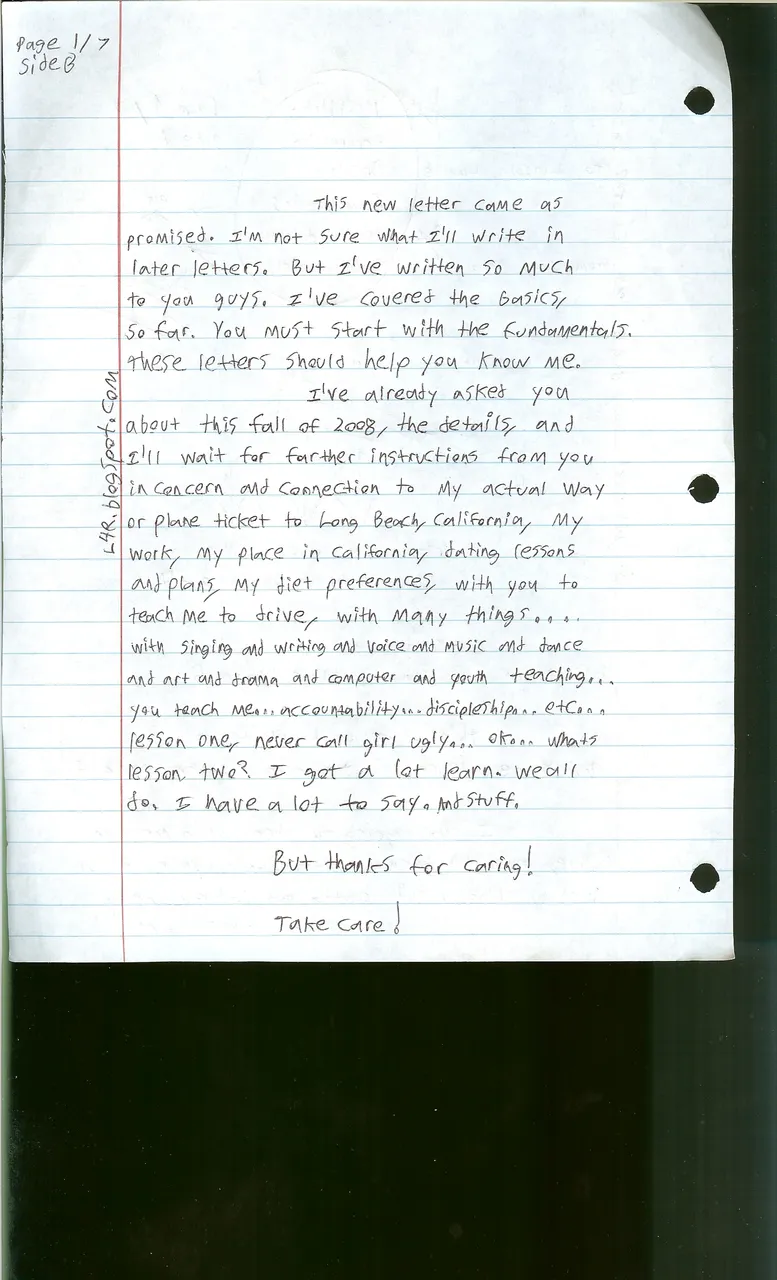 Page 1/7
Side B
This new letter came as
promised. I'm not sure what I'll write in
later letters. But I've written so much
to you guys. I've covered the basics,
so far. You must start with the fundamentals.
These letters should help you know me.
I've already asked you
about this fall of 2008, the details, and
I'll wait for farther instructions from you
in concern and connection to my actual way
or plane ticket to Long Beach, California, my
work, my place in California, dating lessons
and plans, my diet preferences, with you to
teach me to drive, with many things....
with singing and writing and voice and music and dance
and art and drama and computer and youth teaching...
you teach me... accountability... discipleship... etc...
lesson one, never call girl ugly... ok... whats
lesson two? I got a lot learn. we all
do. I have a lot to say. And stuff.
But thanks for caring!
Take care!
L4R.blogspot.com